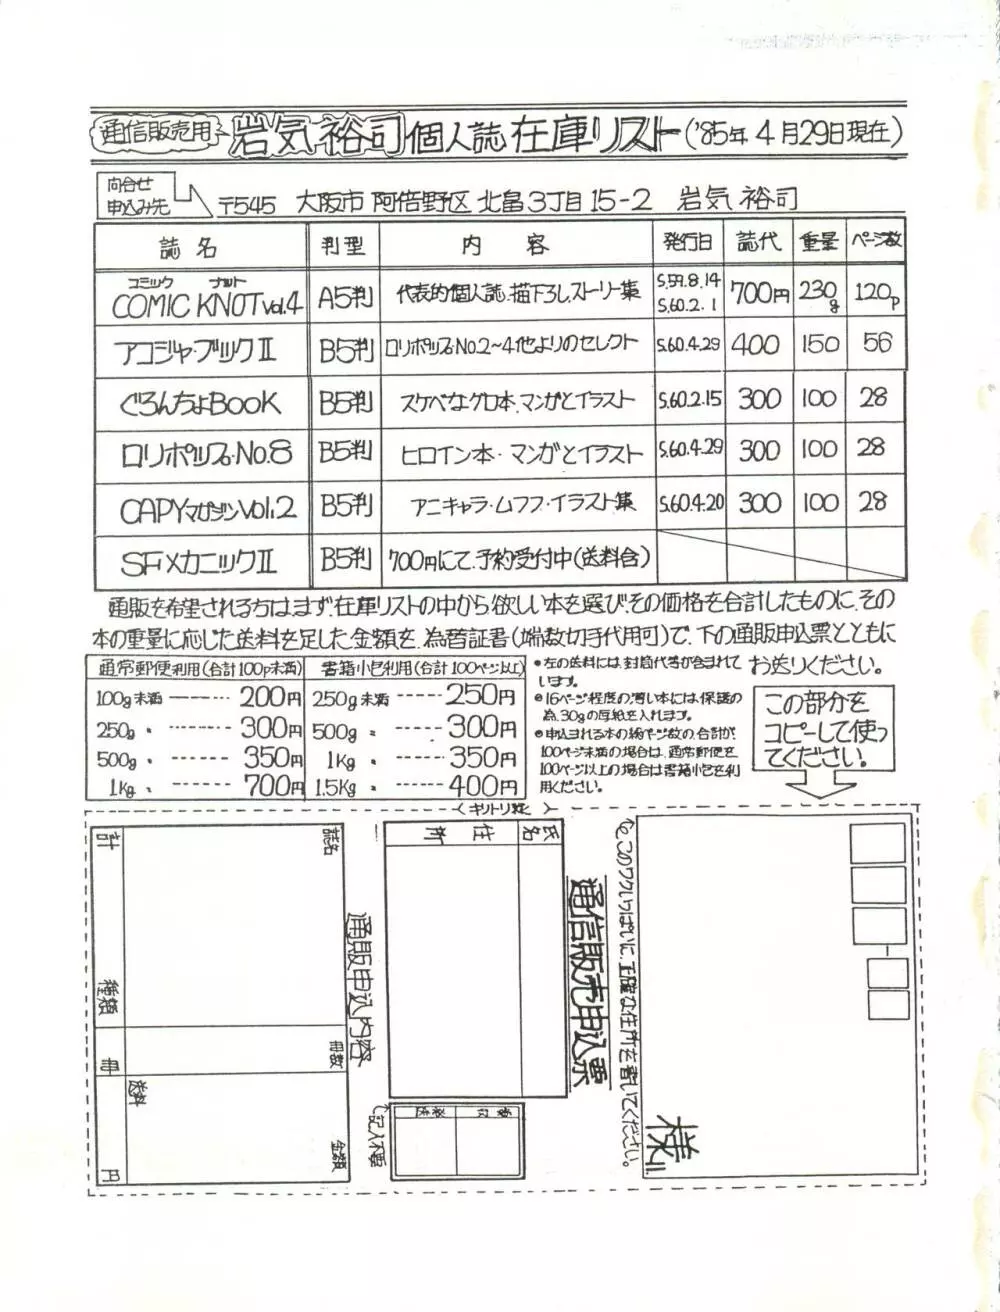 通信販売用 岩気裕司個人誌在庫リスト('85年4月29日現在)
問合せ
申込み先
〒545 大阪市阿倍野区北畠3丁目15-2 岩気裕司
誌名 判型 内容 発行日 誌代 重量 ページ数
コミック ナット
COMIC KNOT Vol.4 A5判 代表的個人誌、描下ろし、ストーリー集 S.59.8.14 S.60.2.1 700円 230g 120p
アコジャ・ブックⅡ B5判 ロリポップNo.2〜4他よりのセレクト S.60.4.29 400 150 56
ぐろんちょBOOK B5判 スケベなグロ本、マンガとイラスト S.60.2.15 300 100 28
ロリポップ・No.8 B5判 ヒロイン本・マンガとイラスト S.60.4.29 300 100 28
CAPYマガジンVol.2 B5判 アニキャラ・ムフフ・イラスト集 S.60.4.20 300 100 28
SFメカニックⅡ B5判 700円にて、予約受付中(送料含)
通販を希望される方はまず、在庫リストの中から欲しい本を選び、その価格を合計したものに、その
本の重量に応じた送料を足した金額を、為替証書(端数切手代用可)で、下の通販申込票とともに
お送りください。
通常郵便利用(合計100p未満)
100g未満 ------- 200円
250g 〃 ------- 300円
500g 〃 ------- 350円
1kg 〃 ------- 700円
書籍小包利用(合計100ページ以上)
250g未満 ------ 250円
500g 〃 ------ 300円
1kg 〃 ------ 350円
1.5kg 〃 ------ 400円
●左の送料には、封筒代等が含まれて
います。
●16ページ程度の薄い本には、保護の
為、30gの厚紙を入れます。
●申込まれる本の総ページ数の合計が、
100ページ未満の場合は、通常郵便を
100ページ以上の場合は書籍小包を利
用ください。
この部分を
コピーして使っ
てください。
キリトリ線
このワクいっぱいに、正確な住所を書いてください。
様
通信販売申込票
氏名
住所
記入不要
通販申込内容
誌名
冊数
金額
送料
計
種類
冊
円